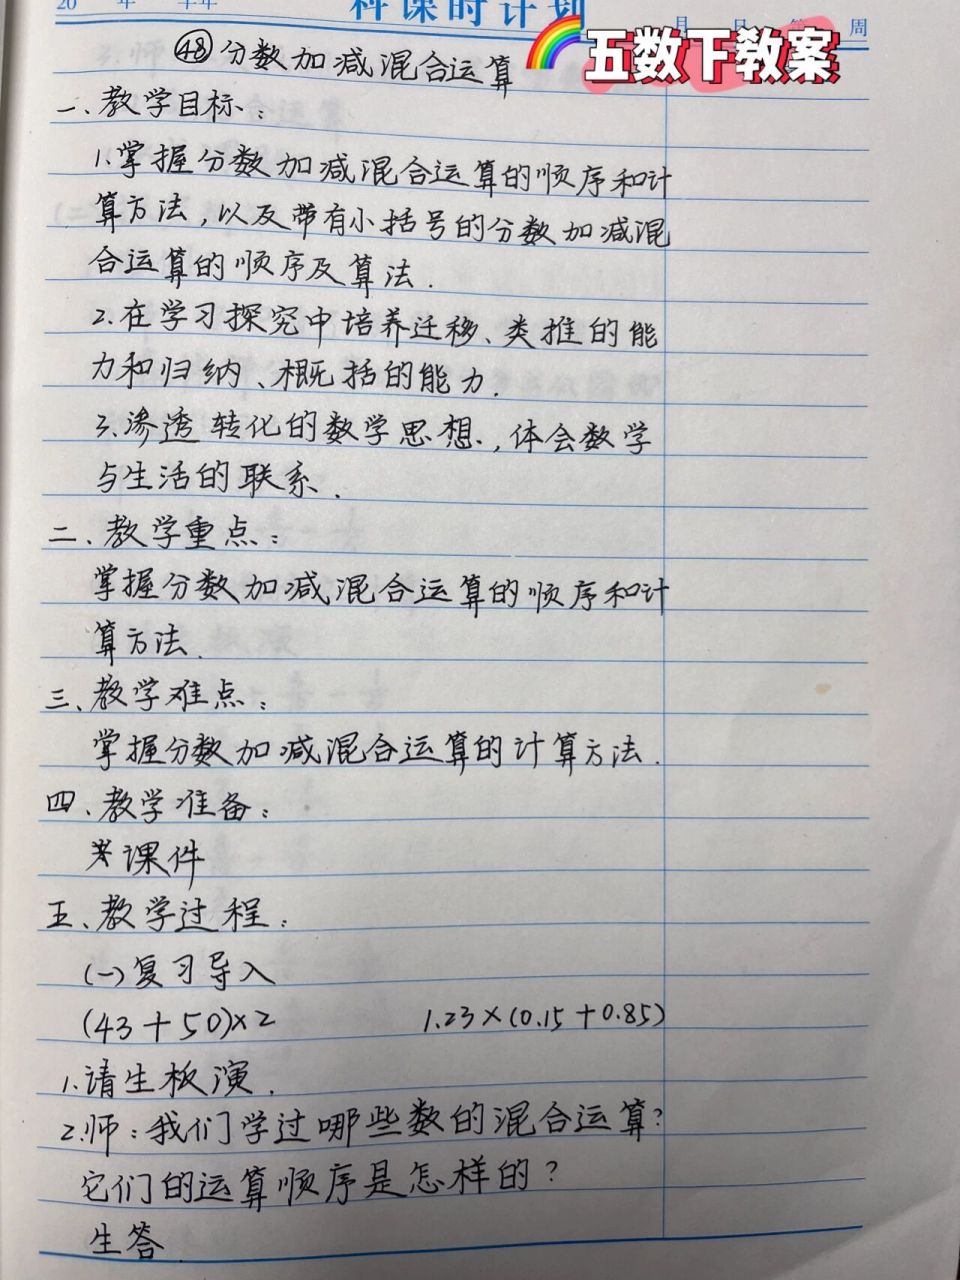 20 年 半年 科课时计划 月 日 第 周
五数下教案
㊽分数加减混合运算
一、教学目标：
1.掌握分数加减混合运算的顺序和计
算方法，以及带有小括号的分数加减混
合运算的顺序及算法.
2.在学习探究中培养迁移、类推的能
力和归纳、概括的能力.
3.渗透转化的数学思想，体会数学
与生活的联系.
二、教学重点：
掌握分数加减混合运算的顺序和计
算方法.
三、教学难点：
掌握分数加减混合运算的计算方法.
四、教学准备：
课件
五、教学过程：
(一)复习导入
(43+50)×2 1.23×(0.15+0.85)
1.请生板演.
2.师：我们学过哪些数的混合运算？
它们的运算顺序是怎样的？
生答.